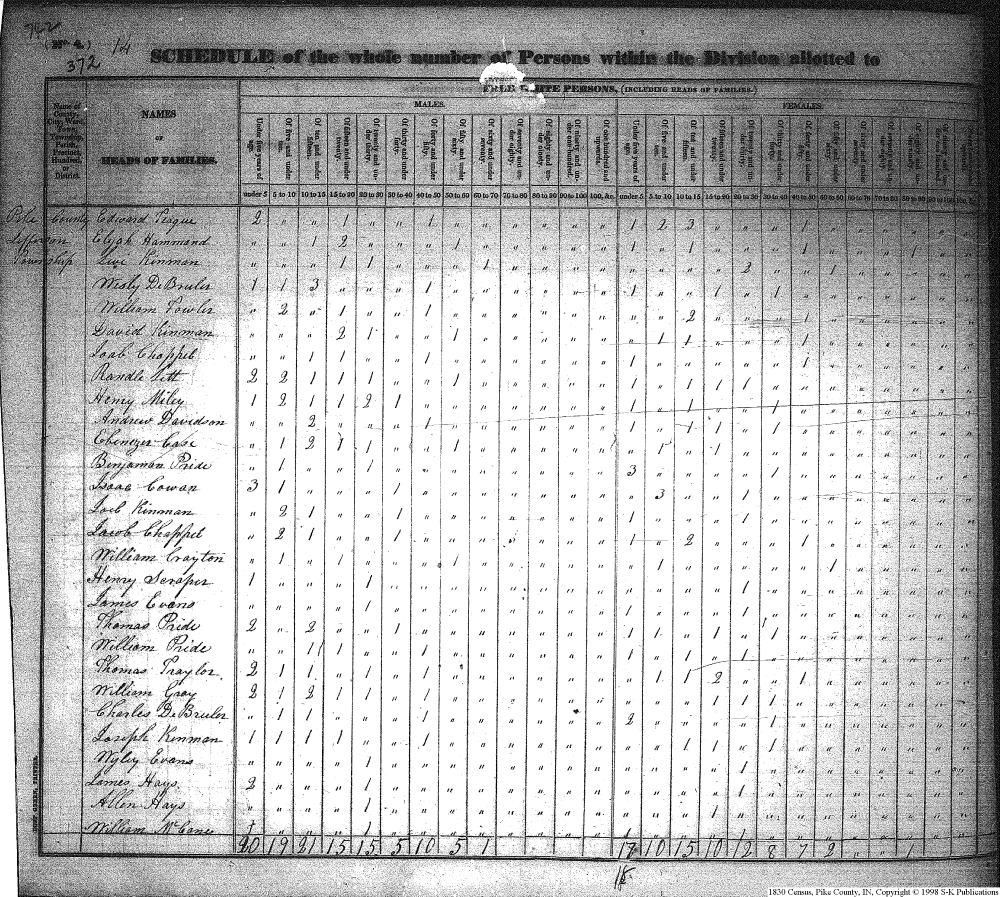 742
(No. 4.) 14
372
SCHEDULE of the whole number of Persons within the Division allotted to
FREE WHITE PERSONS, (INCLUDING HEADS OF FAMILIES.)
MALES. FEMALES.
Name of County, City, Ward, Town, Township, Parish, Precinct, Hundred, or District.
NAMES
OF
HEADS OF FAMILIES.
Under five years of age. Of five and under ten. Of ten and under fifteen. Of fifteen and under twenty. Of twenty and under thirty. Of thirty and under forty. Of forty and under fifty. Of fifty and under sixty. Of sixty and under seventy. Of seventy and under eighty. Of eighty and under ninety. Of ninety and under one hundred. Of one hundred and upwards.
under 5 5 to 10 10 to 15 15 to 20 20 to 30 30 to 40 40 to 50 50 to 60 60 to 70 70 to 80 80 to 90 90 to 100 100, &c. under 5 5 to 10 10 to 15 15 to 20 20 to 30 30 to 40 40 to 50 50 to 60 60 to 70 70 to 80 80 to 90 90 to 100 100, &c.
Pike County Edward Teague 2 " " 1 " " 1 " " " " " " 1 2 3 " " " 1
Jefferson Elijah Hammond " " 1 2 " " " 1 " " " " " 1 " 1 " " " 1 " " " 1
Township Levi Kinman " " " 1 1 " " " 1 " " " " " " " " 2 " " 1
Wesly DeBruler 1 1 3 " " " 1 " " " " " " 1 " " 1 " 1
William Fowler " 2 " 1 " " 1 " " " " " " " " 2 " " " 1
David Kinman " " " 2 1 " " 1 " " " " " " 1 1 " " " 1
Joab Chappel " " 1 1 " " 1 " " " " " " 1 " " " " " 1
Randle Litt 2 2 1 1 1 " " 1 " " " " " 1 " 1 1 1
Henry Miley 1 2 1 1 2 1 " " " " " " " 1 " 1 " " 1
Andrew Davidson " " 2 " " " 1 " " " " " " 1 " 1 1 " 1
Ebenezer Case " 1 2 1 1 " " 1 " " " " " " 1 " 1
Benjaman Pride " 1 " " 1 " " " " " " " " 3 " " " " 1
Isaac Cowan 3 1 " " " 1 " " " " " " " " 3 " " " 1
Joel Kinman " 2 1 " " 1 " " " " " " " 1 " " " 1
Jacob Chappel " 2 1 " " 1 " " " " " " " 1 " 2 " " " 1
William Crayton " 1 " 1 " " " 1 " " " " " " 1 " " " " " 1
Henry Scraper 1 " " " 1 " " " " " " " " " " " " 1
James Evans " " " " 1 " " " " " " " " 1 " " " 1
Thomas Pride 2 " 2 " " 1 " " " " " " " 1 1 " 1 " 1
William Pride " " 1 1 " " 1 " " " " " " 1 " 1 " 1
Thomas Traylor 2 1 1 " " " 1 " " " " " " " 1 1 2 " " 1
William Gray 2 1 2 1 1 " 1 " " " " " " " " " 1 1 1
Charles DeBruler " 1 1 " " " 1 " " " " " " 2 " " " " 1
Joseph Kinman 1 1 1 1 " " 1 " " " " " " " " 1 1 " 1
Wyley Evans " " " " 1 " " " " " " " " " " " " 1
James Hays 2 " " " 1 " " " " " " " " " " " " 1
Allen Hays " " " " 1 " " " " " " " " " " " 1
William McCane 1 " " " 1 " " " " " " " " 1
20 19 21 15 15 5 10 5 1 17 10 15 10 12 8 7 2 " " 1
18
1830 Census, Pike County, IN, Copyright © 1998 S-K Publications